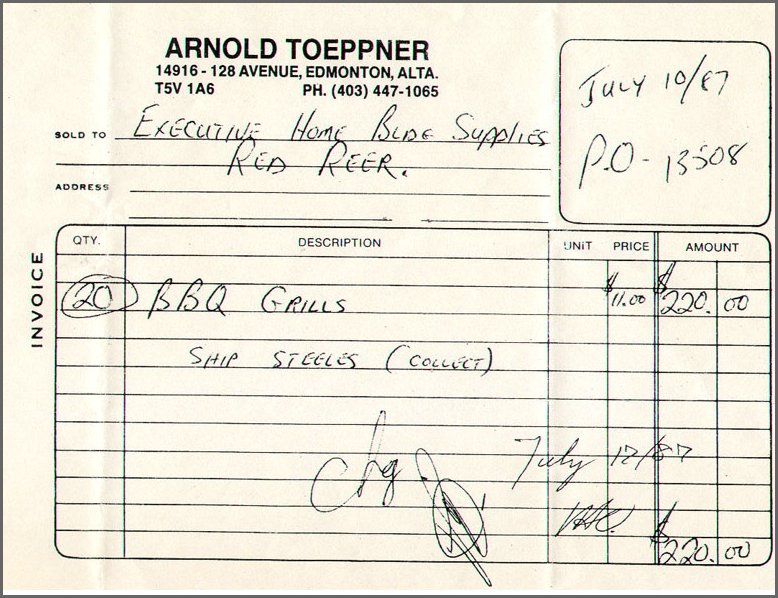 ARNOLD TOEPPNER
14916 - 128 AVENUE, EDMONTON, ALTA.
T5V 1A6 PH. (403) 447-1065
JULY 10/87
P.O - 13508
SOLD TO EXECUTIVE HOME BLDG SUPPLIES
RED REER.
ADDRESS
INVOICE
QTY. DESCRIPTION UNIT PRICE AMOUNT
20 BBQ GRILLS $11.00 $220.00
SHIP STEELES (COLLECT)
chg July 17/87
$220.00